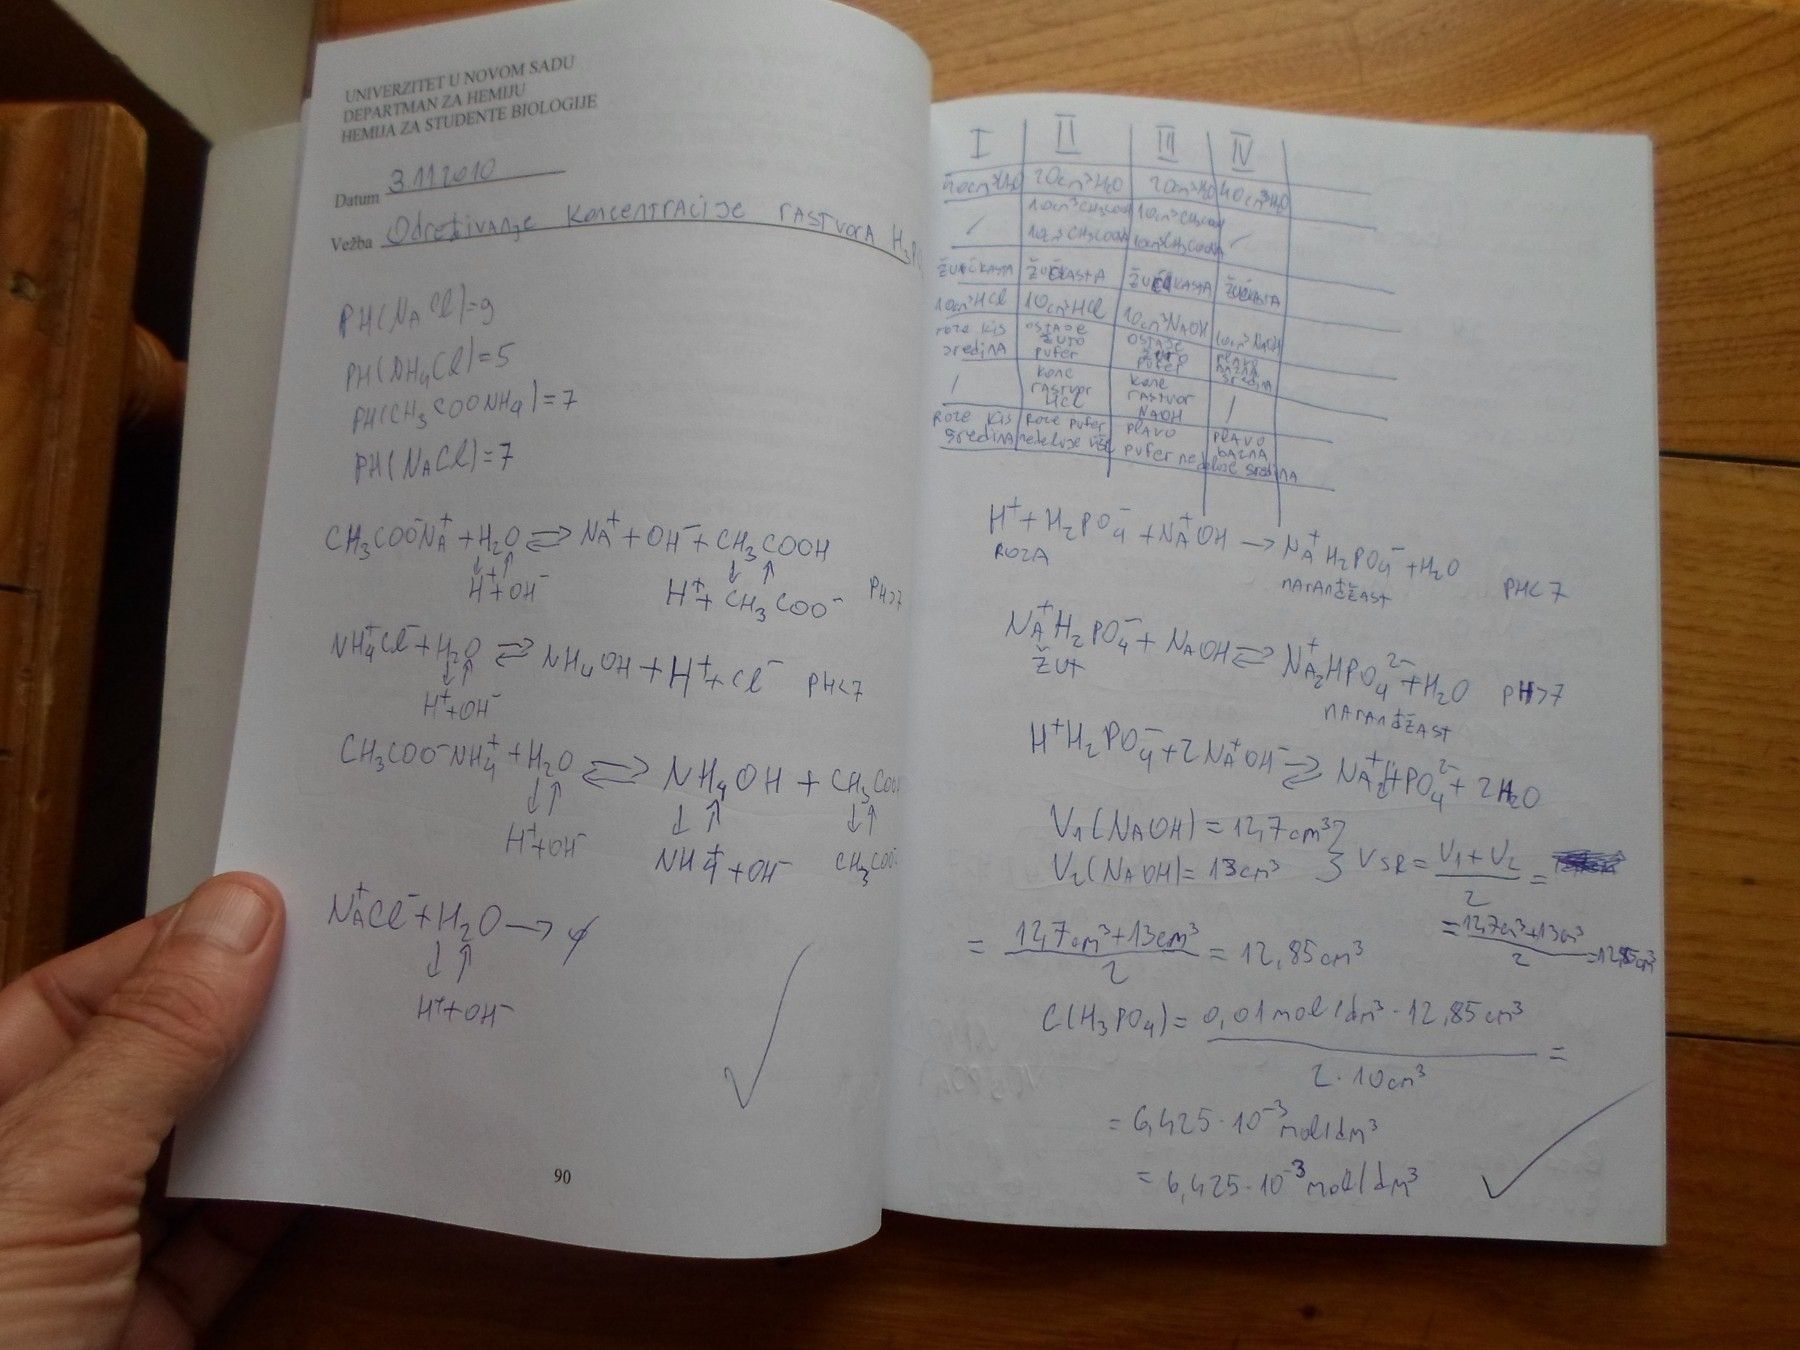 UNIVERZITET U NOVOM SADU
DEPARTMAN ZA HEMIJU
HEMIJA ZA STUDENTE BIOLOGIJE
Datum 3112010
Vežba Određivanje koncentracije rastvora H₃PO
PH(NaCl)=9
PH(NH₄Cl)=5
PH(CH₃COONH₄)=7
PH(NaCl)=7
CH₃COO⁻Na⁺ + H₂O ⇌ Na⁺ + OH⁻ + CH₃COOH
↓↑ ↓ ↑
H⁺+OH⁻ H⁺+ CH₃COO⁻ PH>7
NH₄⁺Cl⁻ + H₂O ⇌ NH₄OH + H⁺ + Cl⁻ PH<7
↓↑
H⁺+OH⁻
CH₃COO⁻NH₄⁺ + H₂O ⇌ NH₄OH + CH₃COO
↓↑ ↓ ↑ ↓↑
H⁺+OH⁻ NH₄⁺ + OH⁻ CH₃COO⁻
Na⁺Cl⁻ + H₂O → ∅
↓ ↑
H⁺+OH⁻
90
I II III IV
20cm³H₂O 20cm³H₂O 20cm³H₂O 40cm³H₂O
/ 10cm³CH₃COOH 10cm³CH₃COOH /
10cm³CH₃COONa 10cm³CH₃COONa
žućkasta žućkasta žućkasta žućkasta
10cm³HCl 10cm³HCl 10cm³NaOH 10cm³NaOH
roze kis ostaje ostaje plavo
sredina žuto žuto bazna
pufer pufer sredina
/ konc konc /
rastvor rastvor
HCl NaOH
roze kis roze pufer plavo plavo
sredina nedeluje više pufer ne deluje bazna
sredina
H⁺ + H₂PO₄⁻ + Na⁺OH → Na⁺H₂PO₄⁻ + H₂O PH<7
roza narandžast
Na⁺H₂PO₄⁻ + NaOH ⇌ Na₂⁺HPO₄²⁻ + H₂O pH>7
žut narandžast
H⁺H₂PO₄⁻ + 2Na⁺OH⁻ ⇌ Na₂⁺HPO₄²⁻ + 2H₂O
V₁(NaOH) = 12,7cm³ }
V₂(NaOH) = 13cm³ } Vsr = V₁+V₂/2 =
= 12,7cm³+13cm³/2 = 12,85cm³
= 12,7cm³+13cm³/2 = 12,85cm³
C(H₃PO₄) = 0,01mol/dm³ · 12,85cm³ / 2·10cm³ =
= 6,425·10⁻³ mol/dm³
= 6,425·10⁻³ mol/dm³